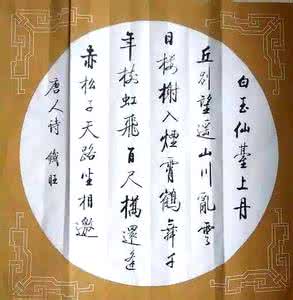 白玉仙臺上丹
丘别望遥山川亂雲
日樓榭入煙霄鶴舞千
年樹虹飛百尺橋還逢
赤松子天路坐相邀
唐人诗 錢旺